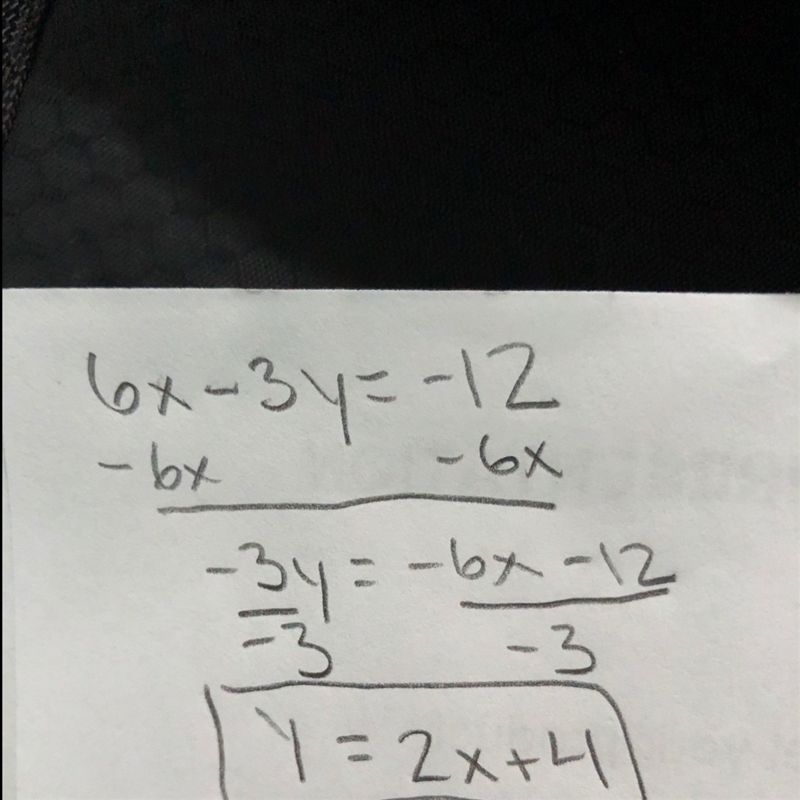 6x-3y=-12
-6x -6x
-3y = -6x -12
-3 -3
y = 2x+4